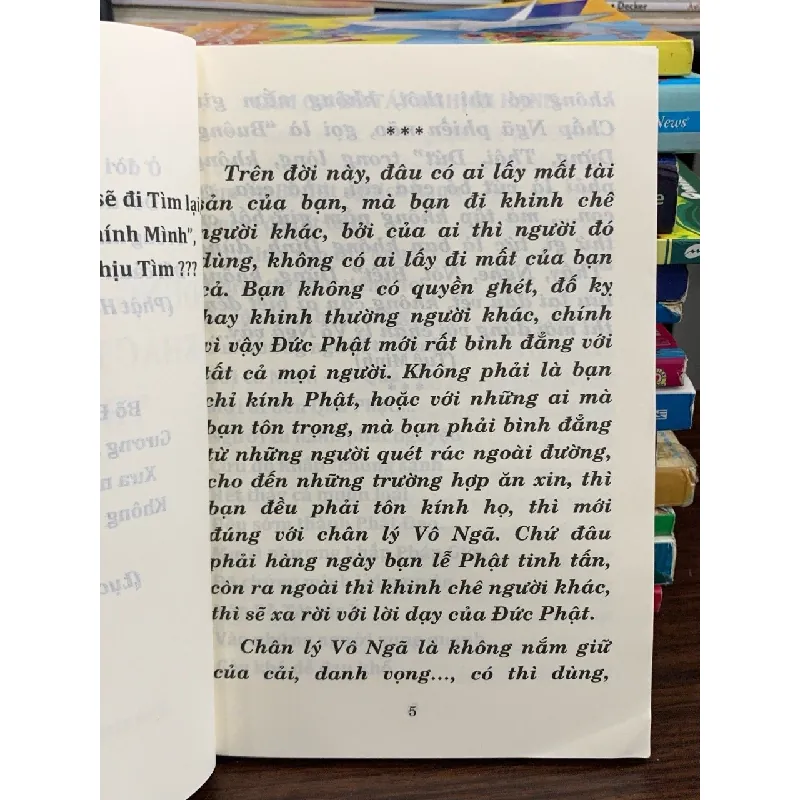 Decker
News
sẽ đi Tìm lại
hính Mình",
hịu Tìm ???
***
Trên đời này, đâu có ai lấy mất tài
sản của bạn, mà bạn đi khinh chê
người khác, bởi của ai thì người đó
dùng, không có ai lấy đi mất của bạn
cả. Bạn không có quyền ghét, đố kỵ
hay khinh thường người khác, chính
vì vậy Đức Phật mới rất bình đẳng với
tất cả mọi người. Không phải là bạn
chỉ kính Phật, hoặc với những ai mà
bạn tôn trọng, mà bạn phải bình đẳng
từ những người quét rác ngoài đường,
cho đến những trường hợp ăn xin, thì
bạn đều phải tôn kính họ, thì mới
đúng với chân lý Vô Ngã. Chứ đâu
phải hàng ngày bạn lễ Phật tinh tấn,
còn ra ngoài thì khinh chê người khác,
thì sẽ xa rời với lời dạy của Đức Phật.
Chân lý Vô Ngã là không nắm giữ
của cải, danh vọng..., có thì dùng,
5